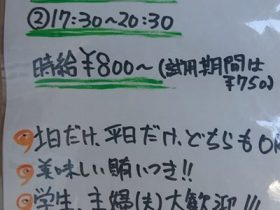 ②17:30~20:30
時給¥800~(試用期間は
¥750)
土日だけ、平日だけ、どちらもOK
美味しい賄いつき!!
学生、主婦(夫)大歓迎!!!